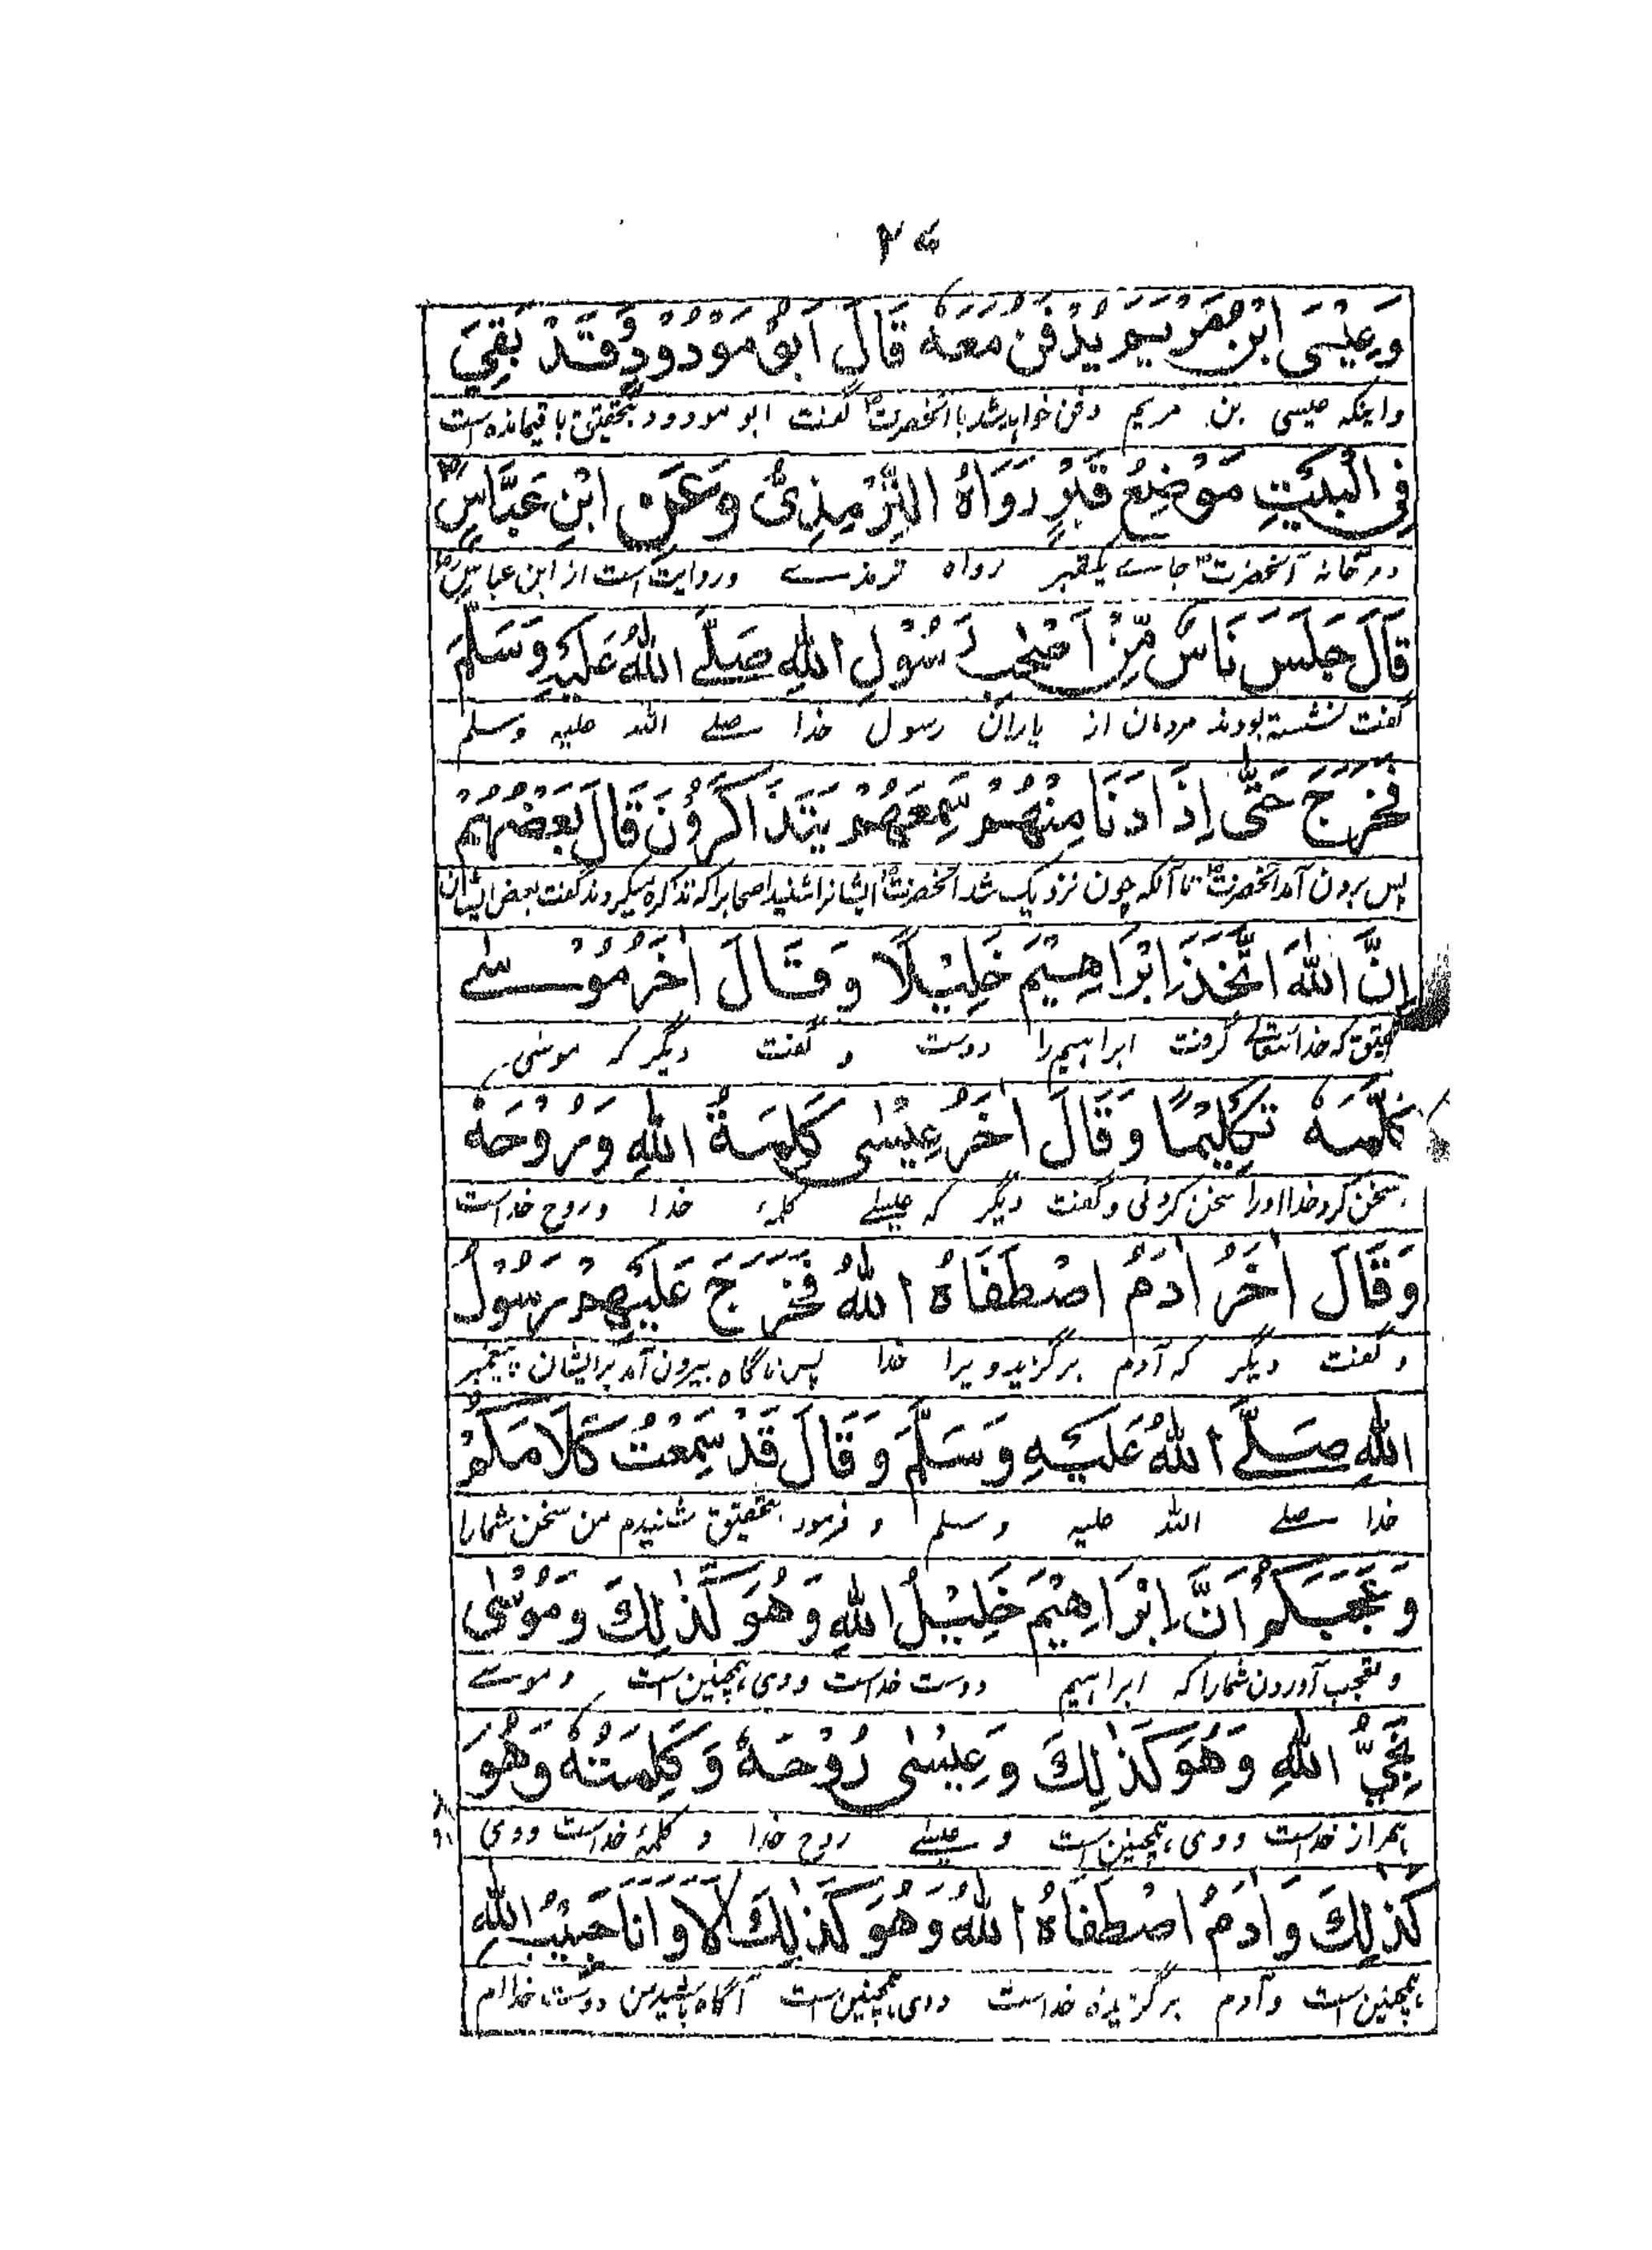 وَعِيْسَى ابْنُ مَرْيَمَ يُدْفَنُ مَعَهٗ قَالَ اَبُوْ مَوْدُوْدٍ وَّقَدْ بَقِيَ
واینکه عیسی بن مریم دفن خواهد شد با آنحضرتؐ گفت ابو مودود بتحقیق باقیمانده است
فِی الْبَيْتِ مَوْضِعُ قَبْرٍ رَوَاهُ التِّرْمِذِیُّ وَعَنِ ابْنِ عَبَّاسٍؓ
در خانه آنحضرتؐ جاے یکقبر رواه ترمذے و روایت است از ابن عباسؓ
قَالَ جَلَسَ نَاسٌ مِّنْ اَصْحٰبِ رَسُوْلِ اللّٰهِ صَلَّے اللّٰهُ عَلَيْهِ وَسَلَّمَ
گفت نشسته بودند مردمان از یاران رسول خدا صلے الله علیه وسلم
فَخَرَجَ حَتّٰی اِذَا دَنَا مِنْهُمْ سَمِعَهُمْ يَتَذَاكَرُوْنَ قَالَ بَعْضُهُمْ
پس برون آمد آنحضرتؐ تا آنکه چون نزدیک شد آنحضرتؐ ایشانرا شنید اصحابرا که تذکره میکردند گفت بعض ایشان
اِنَّ اللّٰهَ اتَّخَذَ اِبْرَاهِيْمَ خَلِيْلًا وَقَالَ اٰخَرُ مُوْسٰے
که خدایتعالے گرفت ابراهیم را دوست و گفت دیگر که موسی
كَلَّمَهٗ تَكْلِيْمًا وَقَالَ اٰخَرُ عِيْسٰی كَلِمَةُ اللّٰهِ وَرُوْحُهٗ
سخن کرد خدا اورا سخن کردنی و گفت دیگر که عیسے کلمهٔ خدا و روح خداست
وَقَالَ اٰخَرُ اٰدَمُ اصْطَفَاهُ اللّٰهُ فَخَرَجَ عَلَيْهِمْ رَسُوْلُ
و گفت دیگر که آدم برگزید ویرا خدا پس ناگاه بیرون آمد بر ایشان پیغمبر
اللّٰهِ صَلَّے اللّٰهُ عَلَيْهِ وَسَلَّمَ وَقَالَ قَدْ سَمِعْتُ كَلَامَكُمْ
خدا صلے الله علیه وسلم و فرمود بتحقیق شنیدم من سخن شمارا
وَعَجَبَكُمْ اَنَّ اِبْرَاهِيْمَ خَلِيْلُ اللّٰهِ وَهُوَ كَذٰلِكَ وَمُوْسٰی
و تعجب آوردن شمارا که ابراهیم دوست خداست ووی همچنین است و موسے
نَجِيُّ اللّٰهِ وَهُوَ كَذٰلِكَ وَعِيْسٰی رُوْحُهٗ وَكَلِمَتُهٗ وَهُوَ
همراز خداست ووی همچنین است و عیسے روح خدا و کلمهٔ خداست ووی
كَذٰلِكَ وَاٰدَمُ اصْطَفَاهُ اللّٰهُ وَهُوَ كَذٰلِكَ اَلَا وَاَنَا حَبِيْبُ اللّٰهِ
همچنین است و آدم برگزیده خداست ووی همچنین است آگاه باشید من دوست خدا ام